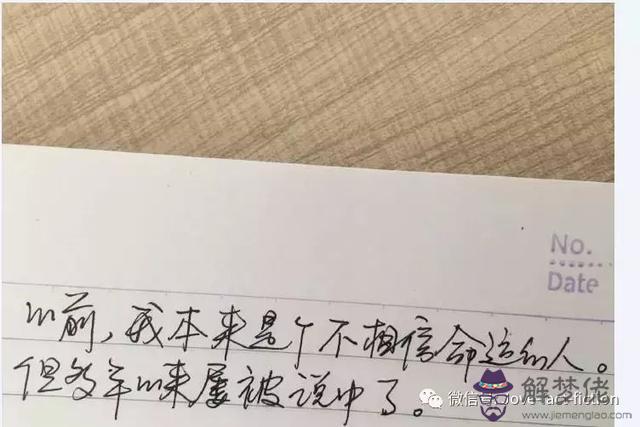 No.
Date
以前，我本来是个不相信命运的人。
但多年以来屡被说中了。
微信号:love-act-fiction
解梦佬
www.jiemenglao.com